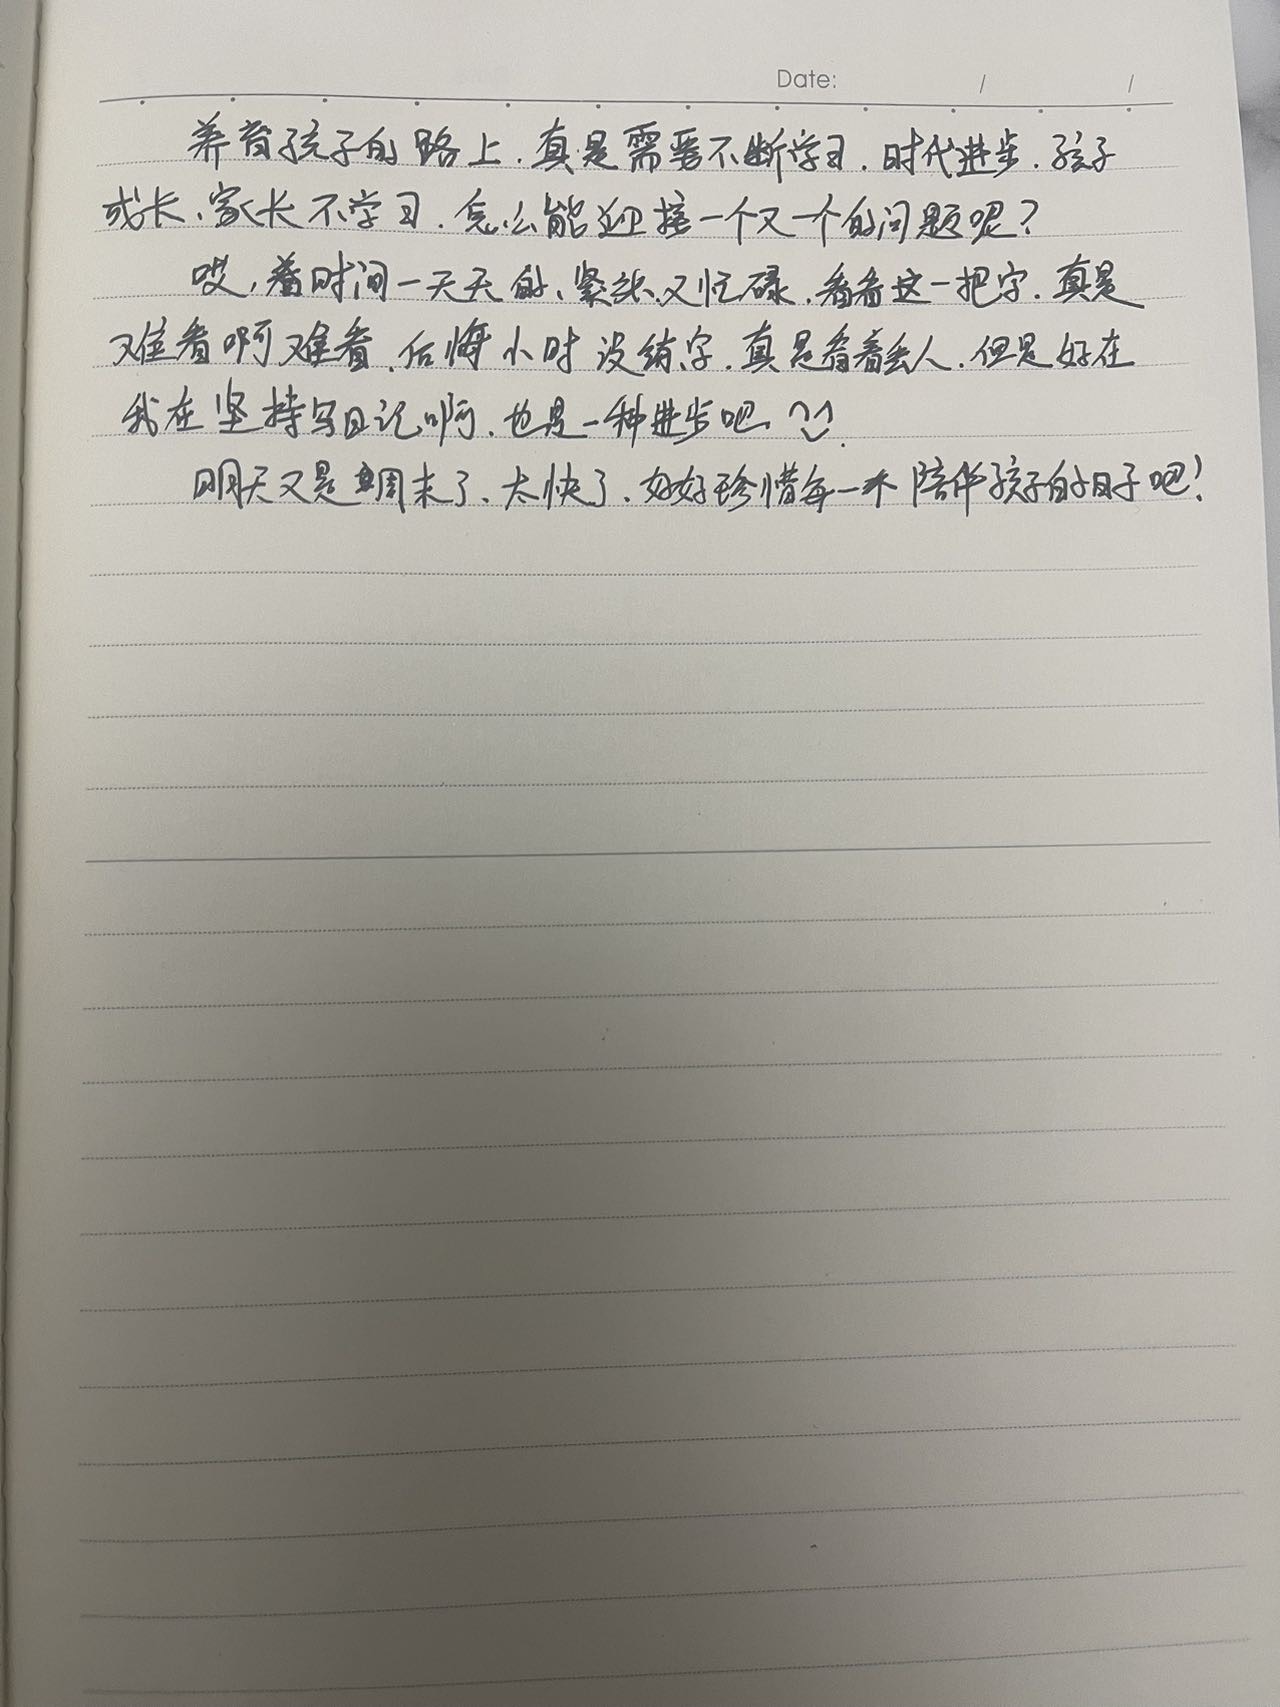 Date: / /
养育孩子的路上.真是需要不断学习.时代进步.孩子
成长、家长不学习.怎么能迎接一个又一个的问题呢？
哎,着时间一天天的、紧张又忙碌.看看这一把字.真是
难看啊难看.后悔小时没练字.真是看着丢人.但是好在
我在坚持写日记啊.也是一种进步吧.
明天又是周末了、太快了.好好珍惜每一个陪伴孩子的日子吧!